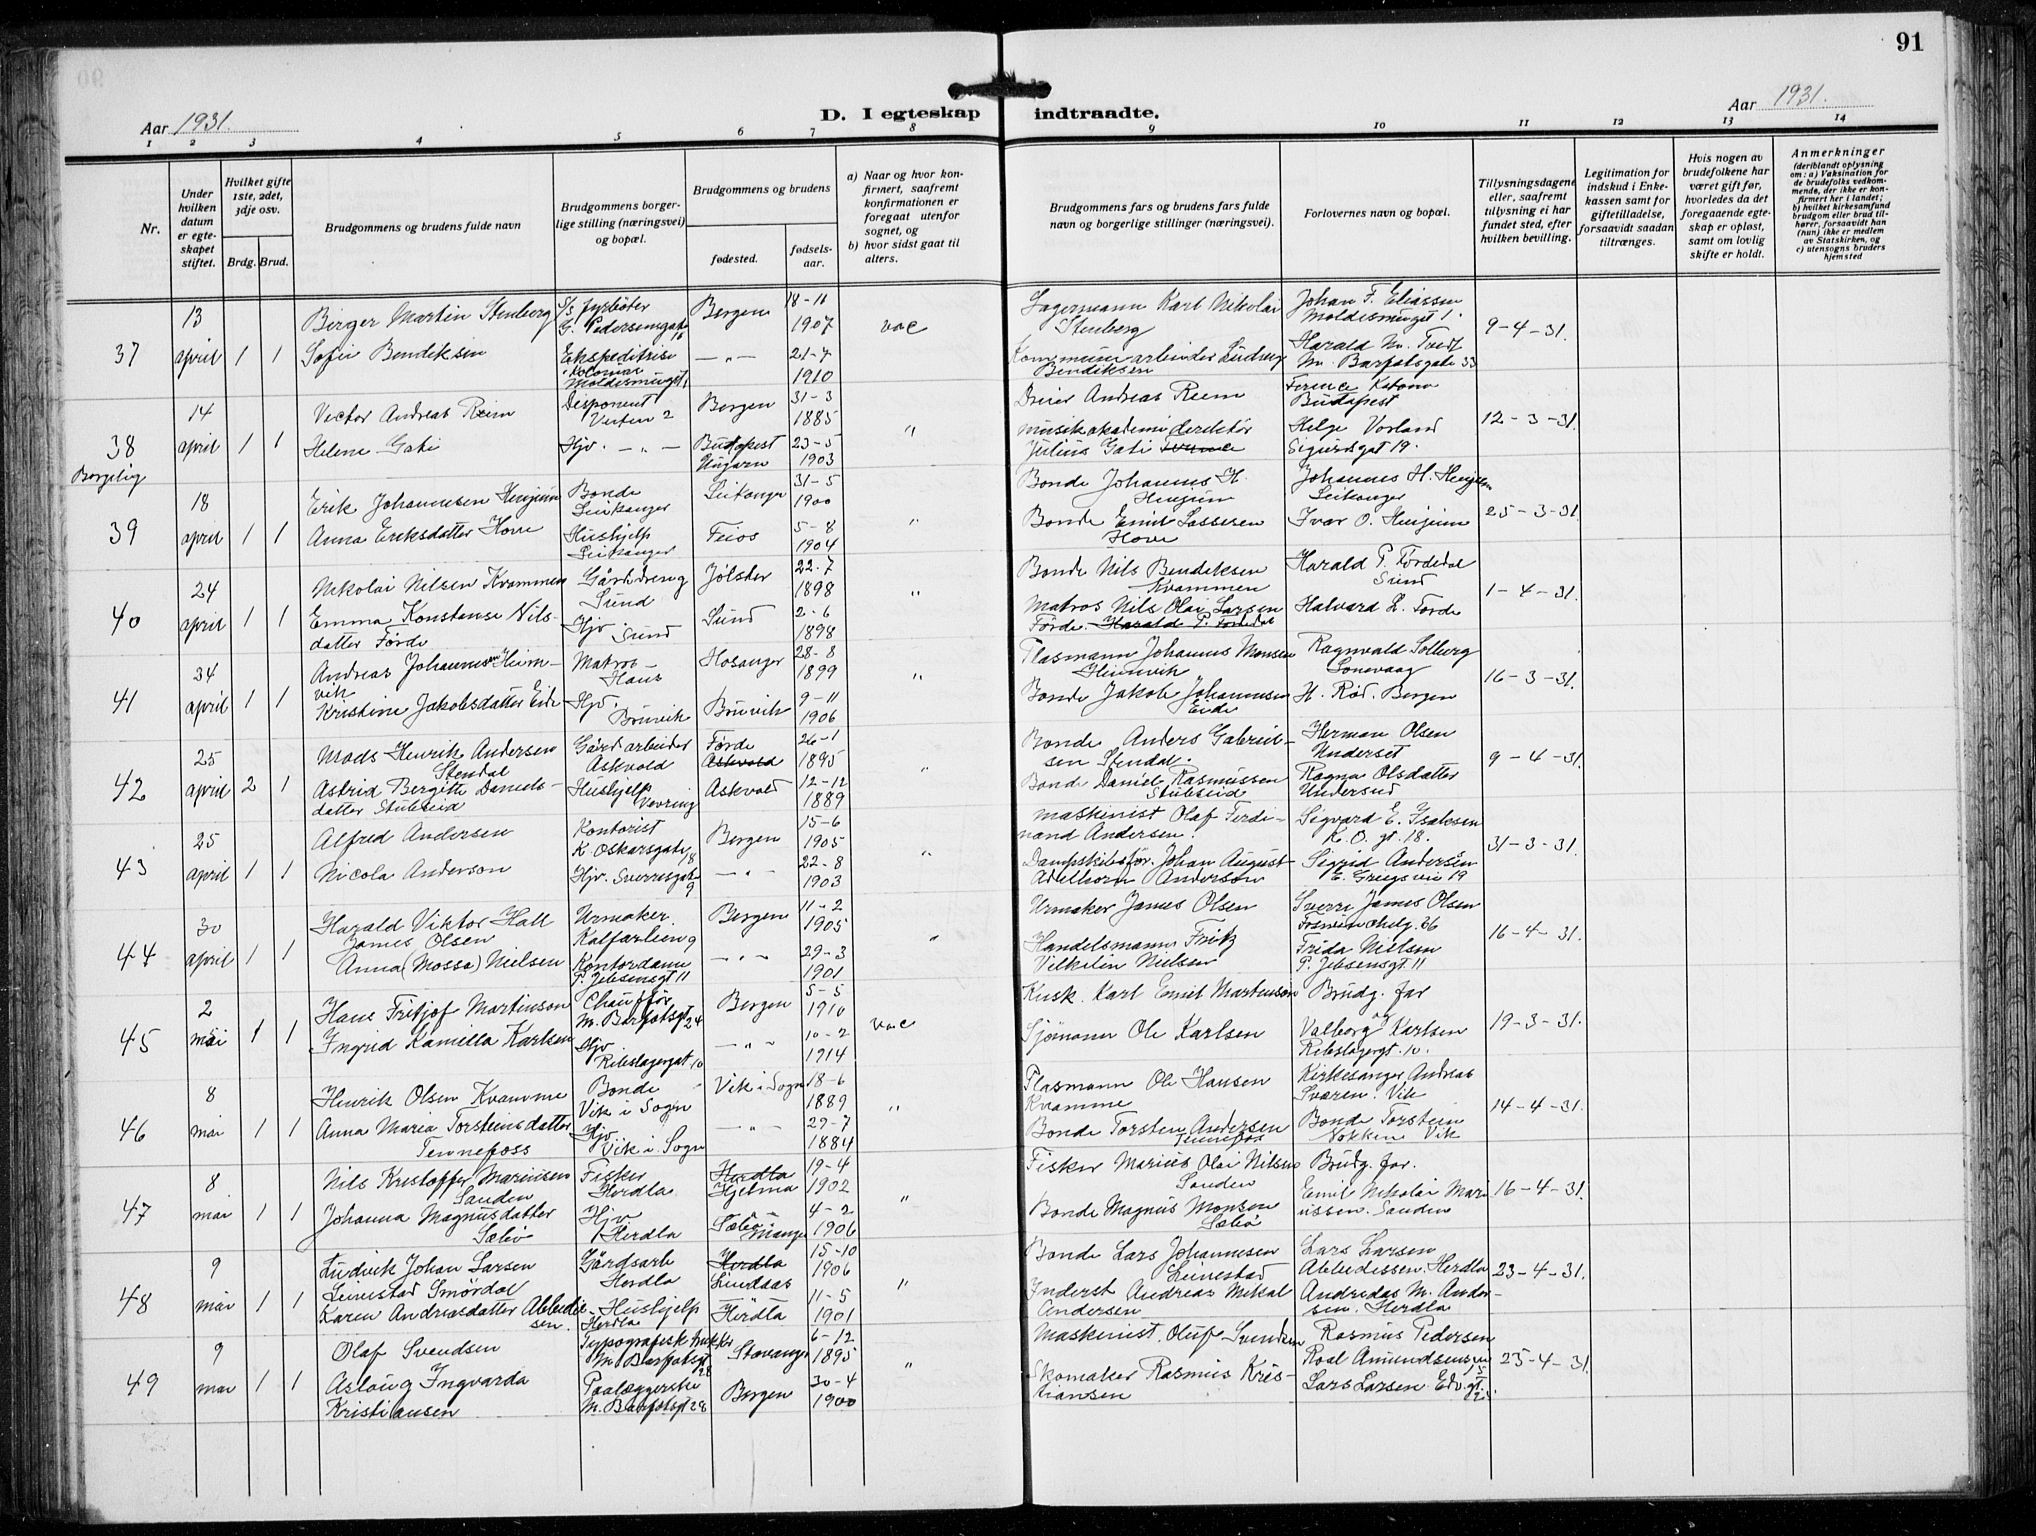 91
Aar 1931.
D. I egteskap indtraadte.
Aar 1931.
1 2 3 4 5 6 7 8 9 10 11 12 13 14
Nr.
Under hvilken datum er egteskapet stiftet.
Hvilket gifte 1ste, 2det, 3dje osv.
Brdg. Brud.
Brudgommens og brudens fulde navn
Brudgommens borgerlige stilling (næringsvei) og bopæl.
Brudgommens og brudens
fødested.
fødselsaar.
a) Naar og hvor konfirmert, saafremt konfirmationen er foregaat utenfor sognet, og
b) hvor sidst gaat til alters.
Brudgommens fars og brudens fars fulde navn og borgerlige stillinger (næringsvei).
Forlovernes navn og bopæl.
Tillysningsdagene eller, saafremt tillysning ei har fundet sted, efter hvilken bevilling.
Legitimation for indskud i Enkekassen samt for giftetilladelse, forsaavidt saadan tiltrænges.
Hvis nogen av brudefolkene har været gift før, hvorledes da det foregaaende egteskap er opløst, samt om lovlig skifte er holdt.
Anmerkninger
(deriblandt oplysning om: a) Vaksination for de brudefolks vedkommende, der ikke er konfirmert her i landet; b) hvilket kirkesamfund brudgom eller brud tilhører, forsaavidt han (hun) ikke er medlem av Statskirken, og c) utensogns bruders hjemsted
37 13 april 1 1
Birger Martin Stenberg S/s fyrbøter G. Pedersensgate 16 Bergen 18-11 1907 vac
Sofie Bendiksen Ekspeditrise Kolonial Moldesmuget 1 —"— 21-7 1910
Lagermann Karl Nikolai Stenberg
Kommunearbeider Ludvig Bendiksen
Johan F. Eliassen Moldesmuget 1.
Harald M. Tvedt M. Barfotsgate 33
9-4-31.
38 Borgelig 14 april 1 1
Victor Andreas Reim Disponent Verten 2 Bergen 31-3 1885 "
Helene Gati Hjv. —"— Budapest Ungarn 23-5 1903
Dreier Andreas Reem
musikakademidirektør Julius Gati
Ference Katona Budapest
Helge Vorland Sigurdsgat 19.
12-3-31.
39 18 april 1 1
Erik Johannesen Henjum Bonde Leikanger Leikanger 31-5 1900 "
Anna Eriksdatter Hove Hushjelp Leikanger Feios 5-8 1904
Bonde Johannes H. Henjum
Bonde Emil Lassesen Hove
Johannes H. Henjum Leikanger
Ivar O. Henjum
25-3-31.
40 24 april 1 1
Nikolai Nilsen Kvammen Gårdsdreng Sund Jølster 22-7 1898 "
Emma Konstanse Nilsdatter Førde Hjv. Sund Sund 2-6 1898
Bonde Nils Bendiksen Kvammen
Matros Nils Olai Larsen Førde. Harald P. Førdedal
Harald P. Førdedal Sund
Halvard L. Førde
1-4-31.
41 34 april 1 1
Andreas Johannessen Heimvik Matros Haus Hosanger 28-8 1899 "
Kristine Jakobsdatter Eide Hjv. Bruvik Bruvik 9-11 1906
Plasmann Johannes Monsen Heimvik
Bonde Jakob Johannesen Eide
Ragnvald Solberg Sonevaag
H. Rød. Bergen
16-3-31.
42 25 april 2 1
Mads Henrik Andersen Stendal Gårdarbeider Askvold Førde Askvold 26-1 1895 "
Astrid Bergitte Danielsdatter Stubseid Hushjelp Vevring Askvold 12-12 1889
Bonde Anders Gabrielsen Stendal.
Bonde Daniel Rasmussen Stubseid
Herman Olsen Underset
Ragna Olsdatter Undersed
9-4-31.
43 25 april 1 1
Alfred Andersen Kontorist K. Oskarsgate 18 Bergen 15-6 1905 "
Nicola Anderson Hjv. Sverresgate 9 —"— 22-8 1903
Maskinist Olaf Ferdinand Andersen.
Dampskibsfør. Johan August Adelhorn Anderson
Sigvard E. Isaksen K. O. gt. 18.
Sigrid Andersen E. Griegsvei 19
31-3-31.
44 30 april 1 1
Harald Viktor Hall James Olsen Urmaker. Kalfarlien 9 Bergen 11-2 1905 "
Anna (Mossa) Nielsen Kontordame P. Jebsensgt 11 —"— 29-3 1901
Urmaker James Olsen
Handelsmann Fritz Vilhelm Nielsen
Sverre James Olsen
Frida Nielsen P. Jebsensgt 11
16-4-31.
45 2 mai 1 1
Hans Fritjof Martinson Chauffør M. Barfotsgt 24 Bergen 5-5 1910 vac
Ingrid Kamilla Karlsen Hjv Rebslagergat 10 —"— 10-2 1914
Kusk. Karl Emil Martinson
Sjømann Ole Karlsen
Brudg. far og
Valborg Karlsen Rebslagergt. 10.
19-3-31.
46 8 mai 1 1
Henrik Olsen Kvamme Bonde Vik i Sogn Vik i Sogn 18-6 1889 "
Anna Maria Torsteinsdatter Tennefoss Hjv Vik i Sogn —"— 29-7 1884
Plasmann Ole Hansen Kvamme
Bonde Torsten Andersen Tennefos
Kirkesanger Andreas Sværen. Vik
Bonde Torstein Nokken Vik
14-4-31.
47 8 mai 1 1
Nils Kristoffer Mariusen Sanden Fisker Herdla Herdla Hjelma 19-4 1902 "
Johanna Magnusdatter Sæbø Hjv Herdla Sæbø Manger 4-2 1906
Fisker Marius Olai Nilsen Sanden
Bonde Magnus Monsen Sæbø
Brudg. far.
Emil Nikolai Mariussen. Sanden
16-4-31.
48 9 mai 1 1
Ludvik Johan Larsen Leinestad Smørdal Gårdsarb Herdla Herdla Lindaas 15-10 1906 "
Karen Andreasdatter Abbedissen. Hushjelp Herdla Herdla 11-5 1901
Bonde Lars Johannesen Leinestad
Inderst Andreas Mikal Andersen
Lars Larsen Abbedissen. Herdla
Andreas M. Andersen. Herdla
23-4-31.
49 9 mai 1 1
Olaf Svendsen Typografisk trykker M. Barfotsgt 28 Stavanger 6-12 1895 "
Aslaug Ingvarda Kristiansen Paaleggerske M. Barfotsgt 28 Bergen 30-4 1900
Maskinist. Oluf Svendsen
Skomaker Rasmus Kristiansen
Rasmus Pedersen Roal Amundsensvei 5
Lars Larsen Edv. gt.
25-4-31.